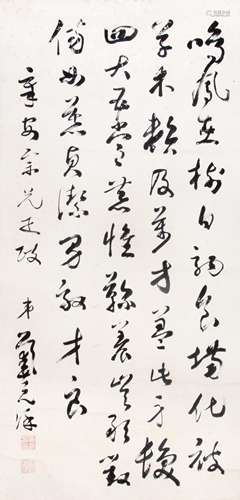 鳴鳳在樹白駒食場化被
草木賴及萬方蓋此身髮
四大五常恭惟鞠養豈敢毀
傷女慕貞潔男效才良
宗兄正
弟